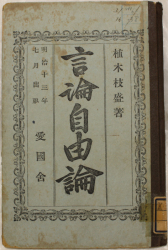 植木枝盛著
言論自由論
明治十三年
七月出版
愛國舍